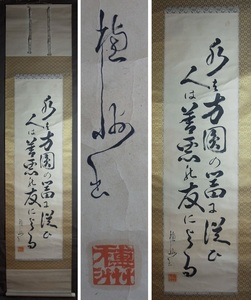 水は方圓の器に従ひ
人は善悪の友による
穂洲
水は方圓の器に従ひ
人は善悪の友による